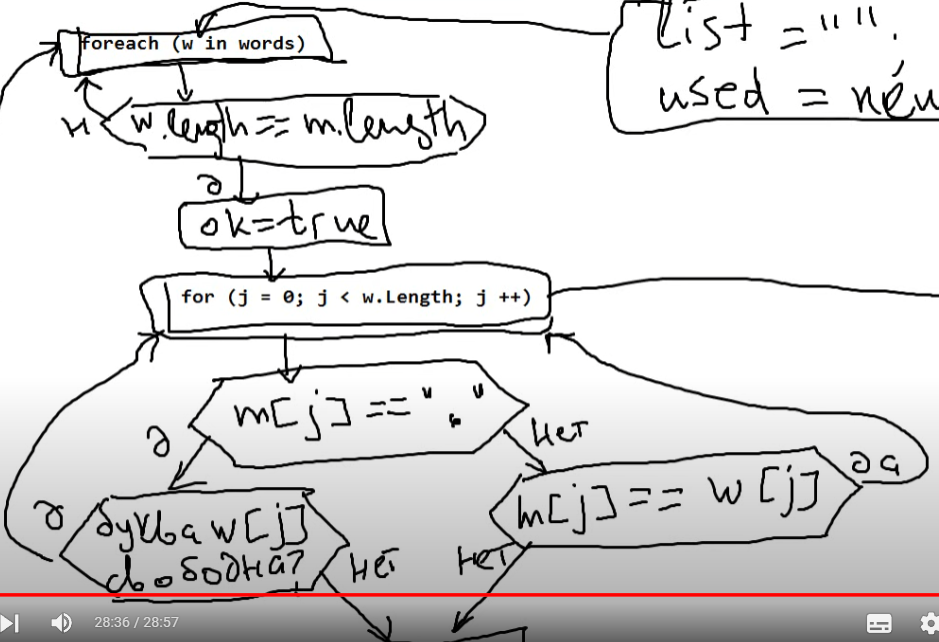 foreach (w in words)
list = "".
used =
w.length == m.length
н
д
ok=true
for (j = 0; j < w.Length; j ++)
m[j] == "."
д
нет
m[j] == w[j]
да
д
буква w[j]
свободна?
нет
нет
28:36 / 28:57